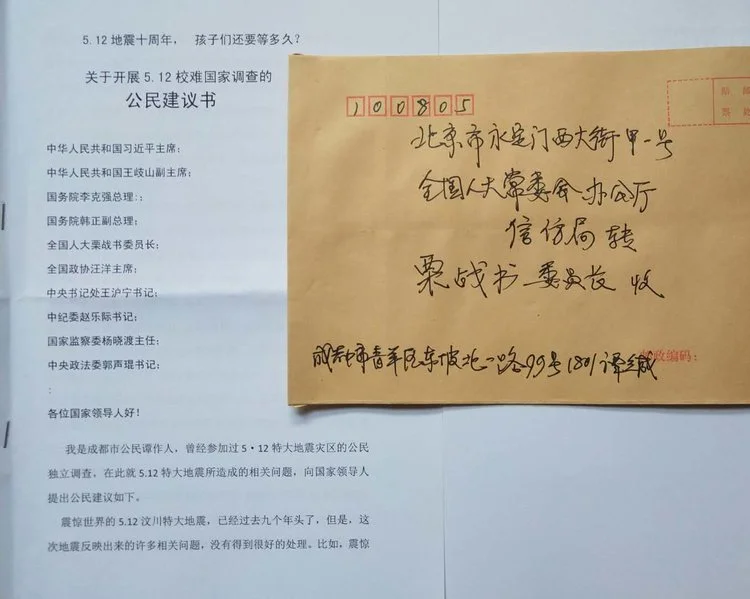 5.12地震十周年， 孩子们还要等多久？
关于开展5.12校难国家调查的
公民建议书
中华人民共和国习近平主席：
中华人民共和国王岐山副主席；
国务院李克强总理:；
国务院韩正副总理；
全国人大栗战书委员长；
全国政协汪洋主席；
中央书记处王沪宁书记；
中纪委赵乐际书记；
国家监察委杨晓渡主任；
中央政法委郭声琨书记；
:
各位国家领导人好！
我是成都市公民谭作人，曾经参加过5·12特大地震灾区的公民
独立调查，在此就5.12特大地震所造成的相关问题，向国家领导人
提出公民建议如下。
震惊世界的5.12汶川特大地震，已经过去九个年头了，但是，这
次地震反映出来的许多相关问题，没有得到很好的处理。比如，震惊
100805
北京市永定门西大街甲一号
全国人大常委会办公厅
信访局转
栗战书 委员长 收
成都市青羊区东坡北一路99号1801谭缄
邮政编码：
贴 邮
票 处